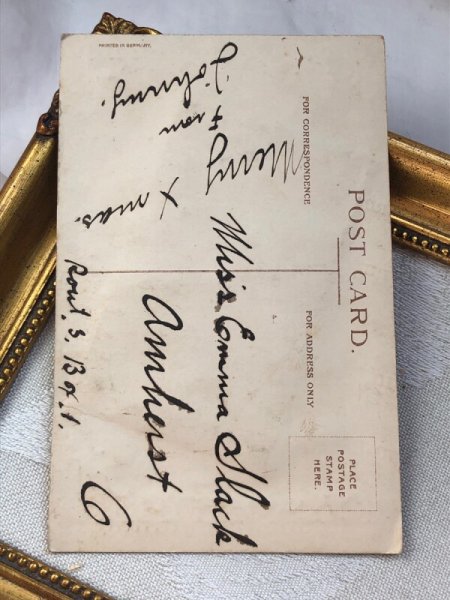 POST CARD.
FOR CORRESPONDENCE
FOR ADDRESS ONLY
PLACE
POSTAGE
STAMP
HERE.
Merry Xmas.
From
Johnny.
Miss Emma Slack
Amherst
O
Rout. 3. Box 1.
PRINTED IN GERMANY.